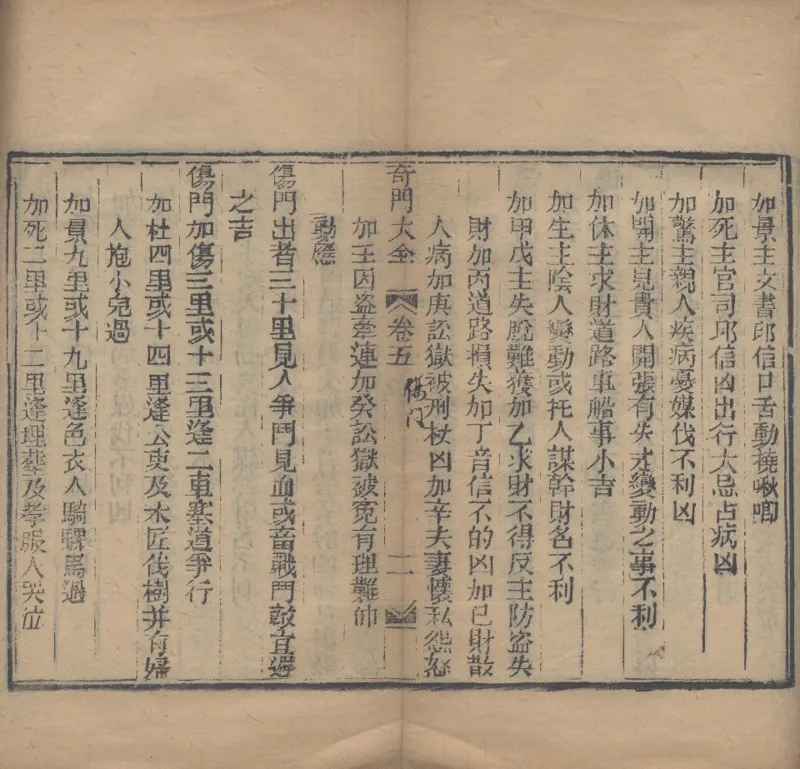 如景主文書印信口舌動撓啾唧
如死主官司印信凶出行大忌占病凶
如驚主親人疾病憂媒伐不利凶
如開主見貴人開張有失才變動之事不利
如休主求財道路車船事小吉
如生主陰人變動或托人謀幹財名不利
如甲戊主失脫難獲加乙求財不得反主防盜失
財加丙道路損失加丁音信不的凶加已財散
人病加庚訟獄被刑杖凶加辛夫妻懷私怨怒
奇門大全 卷五 傷门 二
加壬因盜牽連加癸訟獄被冤有理難伸
動應
傷門出者三十里見人爭鬥見血或畜戰鬥鼓宜避
之吉
傷門加傷三里或十三里逢二車塞道爭行
如杜四里或十四里逢公吏及木匠伐樹并有婦
人抱小兒過
如景九里或十九里逢色衣人騎騾馬過
如死二里或十二里逢埋葬及孝服人哭泣